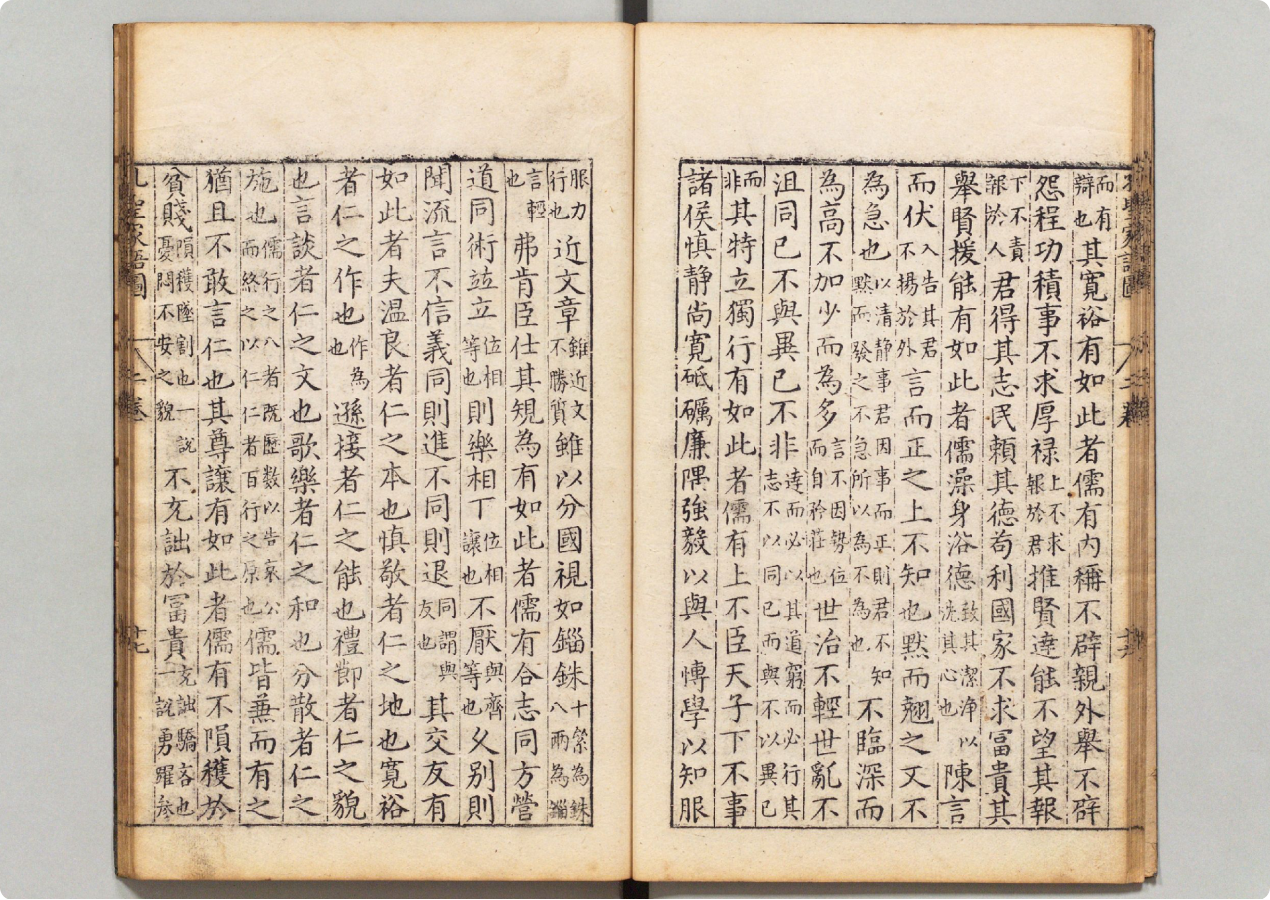 而有辯也其寛裕有如此者儒有内稱不辟親外舉不辟
怨程功積事不求厚禄上不求報於君推賢達能不望其報
下不責報於人君得其志民頼其德苟利國家不求冨貴其
舉賢援能有如此者儒澡身浴德致其潔淨以洗其心也陳言
而伏入告其君不揚於外言而正之上不知也黙而翹之又不
為急也以清静事君因事而正則君不知黙而發之不急所以為不為也不臨深而
為高不加少而為多言不因勢位而自矜莊也世治不輕世亂不
沮同已不與異已不非逹而必以其道窮而必行其志不以同已而與不以異已
而非其特立獨行有如此者儒有上不臣天子下不事
諸侯慎静尚寛砥礪廉隅強毅以與人慱學以知服
服力行也近文章雖近文不勝質雖以分國視如錙銖十絫為銖八兩為錙
言輕也弗肯臣仕其規為有如此者儒有合志同方營
道同術竝立位相等也則樂相下位相讓也不厭與齊等也乆别則
聞流言不信義同則進不同則退同謂與友也其交友有
如此者夫温良者仁之本也慎敬者仁之地也寛裕
者仁之作也作為也遜接者仁之能也禮節者仁之貌
也言談者仁之文也歌樂者仁之和也分散者仁之
施也儒行之八者既歷數以告哀公而終之以仁仁者百行之原也儒皆兼而有之
猶且不敢言仁也其尊讓有如此者儒有不隕穫於
貧賤隕穫墜割也一說憂悶不安之貌不充詘於冨貴充詘驕吝也一說勇躍參
孔聖家語圖
二卷
十七